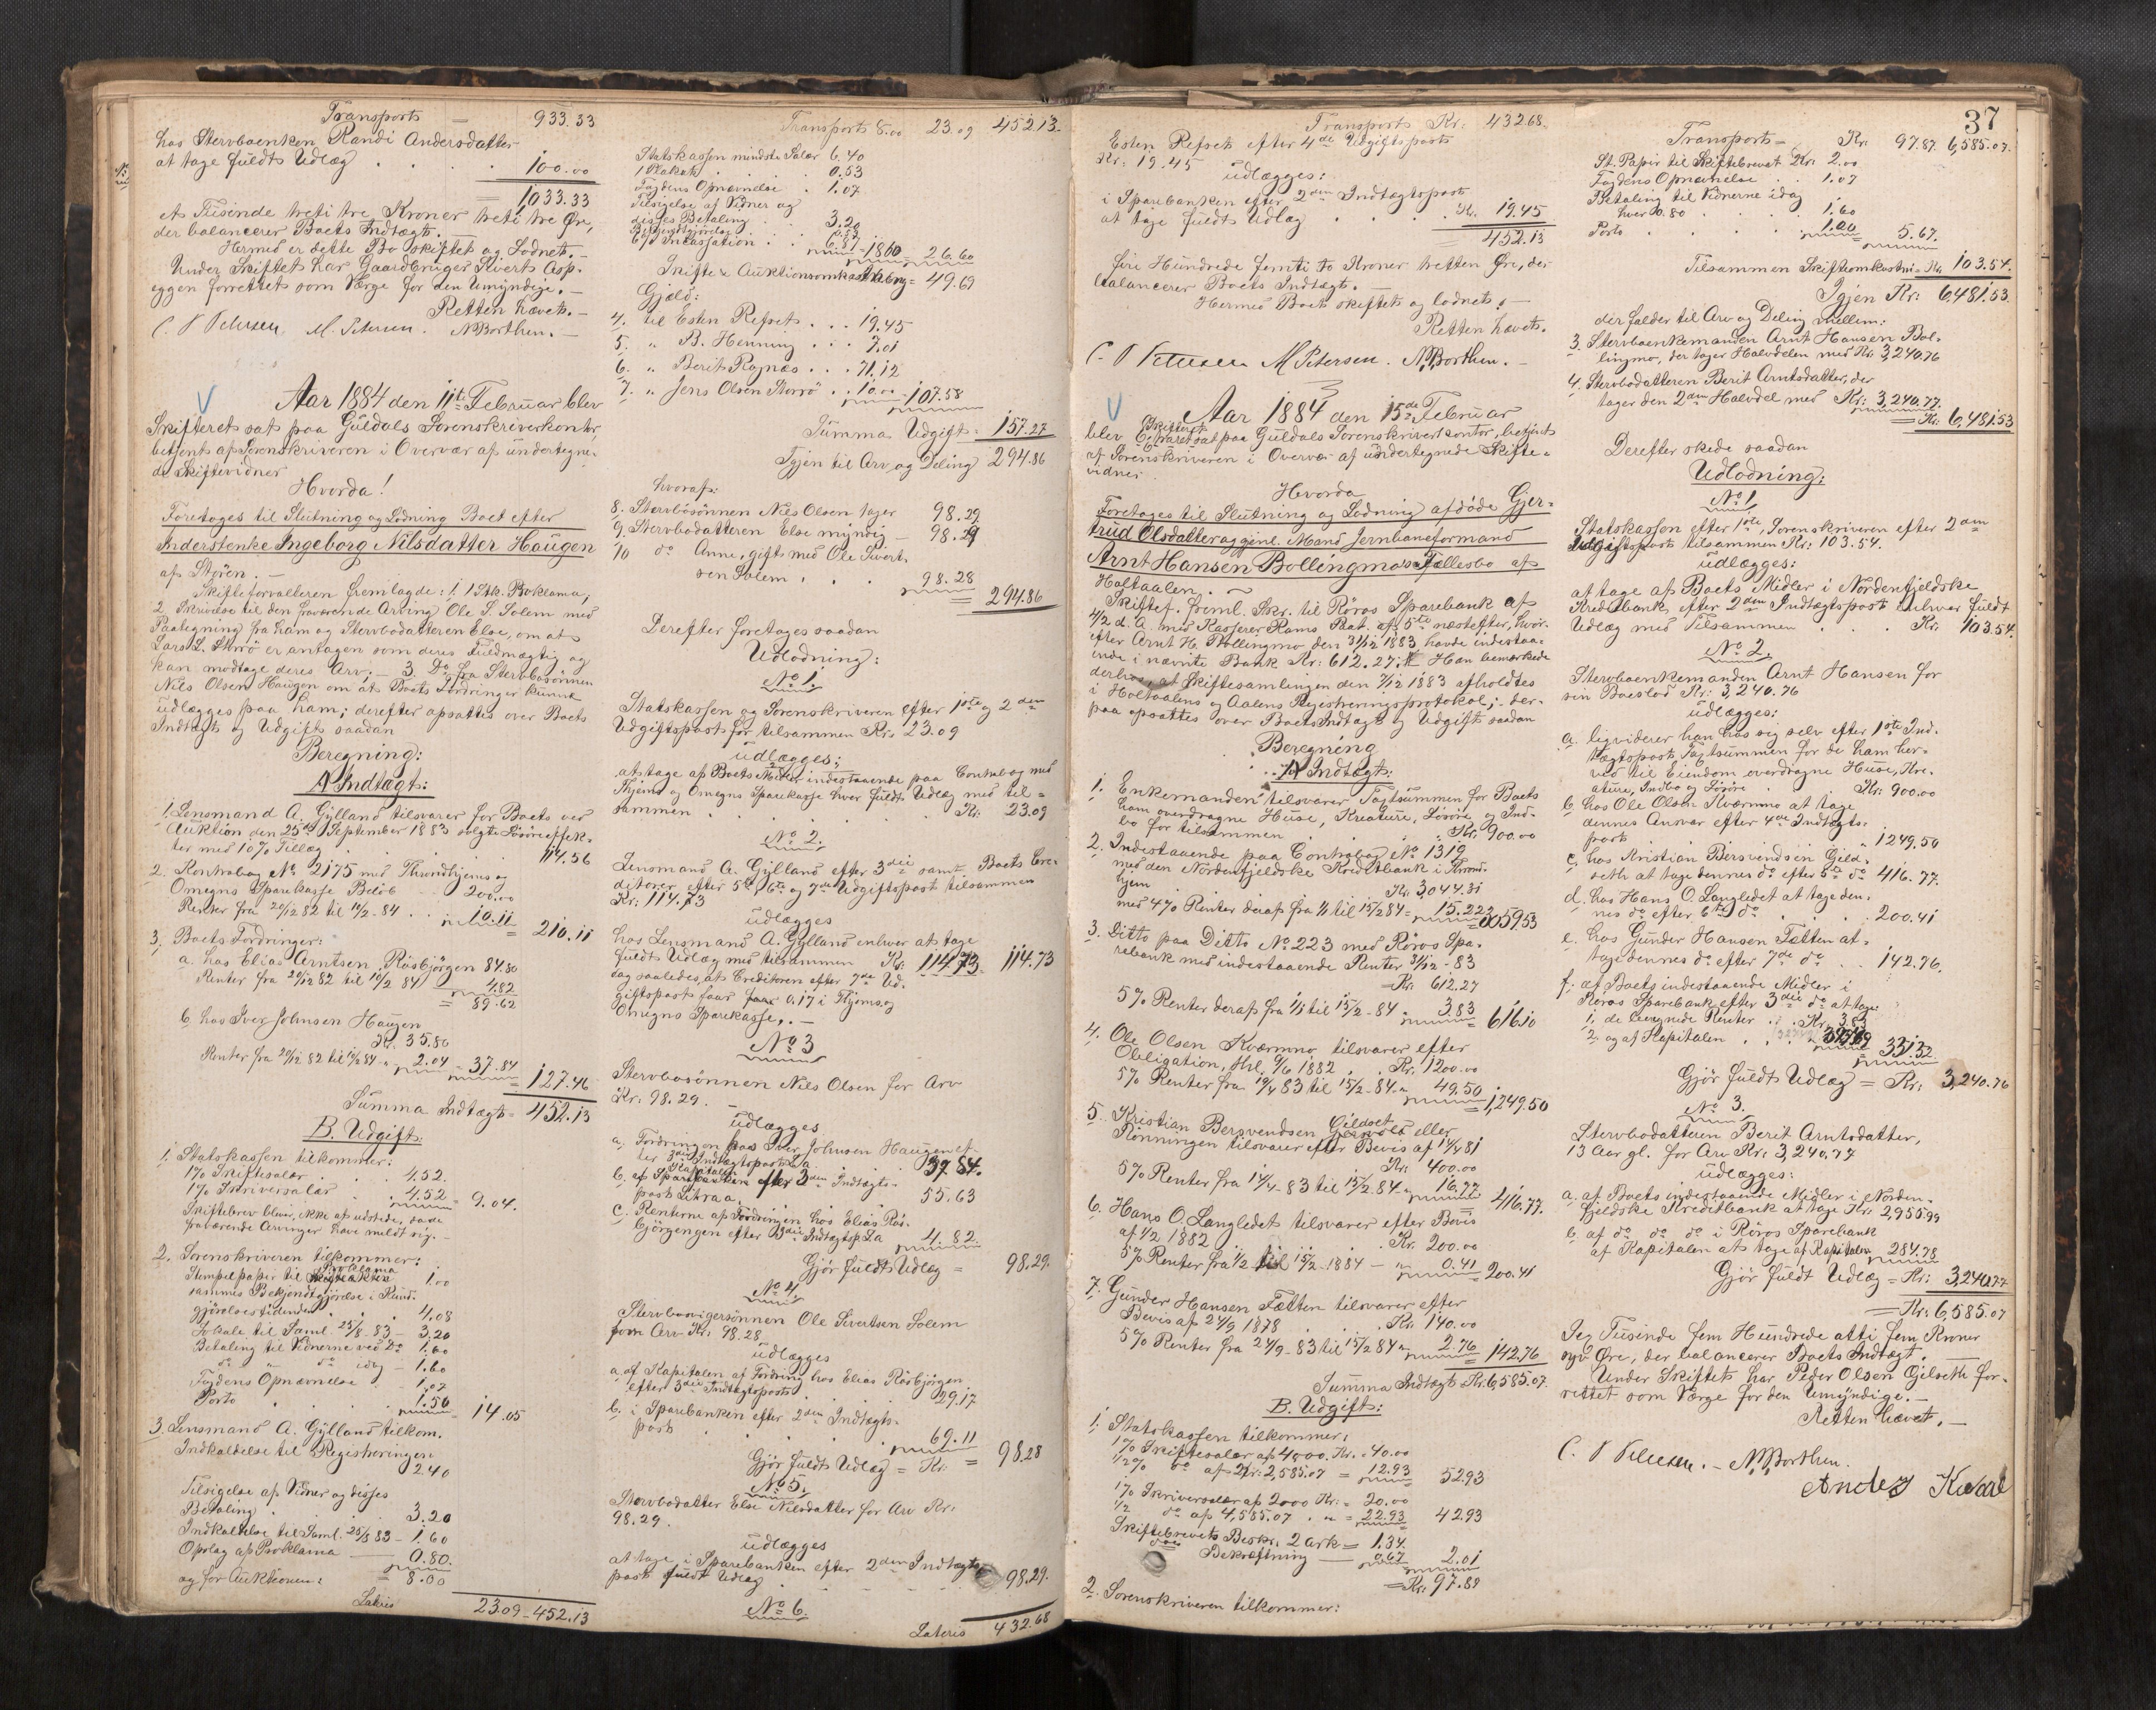 Transport = 933.33
hos Stervboenken Randi Andersdatter
at tage fuldt Udlæg . . . 100.00
1033.33
et Tusinde treti tre Kroner treti tre Øre,
der balancerer Boets Indtægt. —
Hermed er dette Bo skiftet og lodnet. —
Under Skiftet har Gaardbruger Sivert Asp-
eggen forrettet som Værge for den Umyndige. —
Retten hævet. —
C. V Petersen. M. Petersen. N. Borthen. —
Aar 1884 den 11te Februar blev
Skifteret sat paa Guldals Sorenskriverkontor,
betjent af Sorenskriveren i Overvær af undertegne-
de Skiftevidner
Hvorda!
Foretoges til Slutning og Lodning Boet efter
Inderstenke Ingeborg Nilsdatter Haugen
af Støren. —
Skifteforvalteren fremlagde: 1. 1 Stk. Proklama;
2 Skrivelse til den fraværende Arving Ole S. Solem med
Paategning fra ham og Stervbodatteren Else, om at
Lars L. Storrø er antagen som deres Fuldmægtig og
kan modtage deres Arv; — 3. Do fra Stervbosønnen
Nils Olsen Haugen om at Boets Fordringer kunne
udlægges paa ham; derefter opsattes over Boets
Indtægt og Udgift saadan
Beregning:
A Indtægt:
1. Lensmand A. Gylland tilsvarer for Boets ved
Auktion den 25de September 1883 solgte Løsøreeffek-
ter med 10% Tillæg . . . 114.56
2. Kontrabog No 2175 med Throndhjems og
Omegns Sparekasse Beløb - - 200.00
Renter fra 20/12 82 til 10/2 - 84 . . 10.11 = 210.11
3. Boets Fordringer:
a. hos Elias Arntsen Røsbjørgen 84.80
Renter fra 29/12 82 til 10/2 84 4.82
= 89.62
b. hos Iver Johnsen Haugen
Kr. 35.80
Renter fra 29/12 82 til 10/2 84 " 2.04 = 37.84 = 127.46
Summa Indtægt = 452.13
B. Udgift:
1. Statskassen tilkommer:
1% Skiftesalær . . 4.52.
1% Skriversalær . . 4.52 = 9.04.
Skiftebrev bliver ikke at udstede, da de
fraværende Arvinger have meldt sig. —
2. Sorenskriveren tilkommer:
Stempelpapir til Proklama 1.00
sammes Bekjendtgjørelse i Kund-
gjørelsestidenden . . 4.08
Lokale til Saml. 25/8 83 — 3.20
Betaling til Vidnerne ved Do 1.60
do " do idag — 1.60
Fogdens Opnævnelse - 1.07
Porto . . 1.50 = 14.05
3. Lensmand A. Gylland tilkom.
Indkaldelse til Registreringen
2.40
Tilsigelse af Vidner og disses
Betaling . . . 3.20
Indkaldelse til Saml. 25/8 83 — 1.60
Opslag af Proklama — 0.80.
og for Auktionen: = 8.00
Lateris 23.09 - 452.13
Transport 8.00 23.09 452.13.
Statskassen mindste Salær 6.40
1 Plakat . . . 0.53
Fogdens Opnævnelse . 1.07
Tilsigelse af Vidner og
disses Betaling . . 3.20
6% Incassation . . 6.87 = 18.60 = 26.60
Skifte & Auktionsomkostning = 49.69
Gjæld:
4. til Esten Refset . . . 19.45
5. " B. Henning . . . 7.01
6. " Berit Rognæs . . . 71.12
7. " Jens Olsen Storrø . . 10.00 = 107.58
Summa Udgift = 157.27
Igjen til Arv og Deling 294.86
hvoraf:
8. Stervbosønnen Nils Olsen tager 98.29
9. Stervbodatteren Else myndig — 98.29
10 do Anne, gift med Ole Sivert-
sen Solem . . . 98.28
= 294.86
Derefter foretages saadan
Udlodning:
No 1.
Statskassen og Sorenskriveren efter 1ste og 2den
Udgiftspost for tilsammen Kr. 23.09
udlægges:
at tage af Boets Midler indestaaende paa Contrabog med
Thjems og Omegns Sparekasse hver fuldt Udlæg med til-
sammen . . . Kr. 23.09
No 2.
Lensmand A. Gylland efter 3die samt Boets Cre-
ditorer efter 5te, 6te og 7de Udgiftspost tilsammen
Kr. 114.73
udlægges
hos Lensmand A. Gylland enhver at tage
fuldt Udlæg med tilsammen Kr. 114.73. 114.73
dog saaledes, at Creditoren efter 7de Ud-
giftspost faar 0.17 i Thjems og
Omegns Sparekasse. —
No 3
Stervbosønnen Nils Olsen for Arv
Kr. 98.29. —
udlægges
a. Fordringen hos Iver Johnsen Haugen ef-
ter 3die Indtægtspost La 37.84.
b. af Kapitalen efter 3die Indtægts-
post Litra a. 55.63
c. Renterne af Fordringen hos Elias Røs-
bjørgengen efter 3die Indtægtsp. La 4.82.
Gjør fuldt Udlæg = 98.29.
No 4.
Stervbosvigersønnen Ole Sivertsen Solem
for Arv Kr. 98.28
udlægges
a. af Kapitalen af Fordring hos Elias Røsbjørgen
efter 3die Indtægtspost 29.17
b. i Sparebanken efter 2den Indtægts-
post . . . 69.11
Gjør fuldt Udlæg = Kr. = 98.28
No 5.
Stervbodatter Else Nilsdatter for Arv Kr.
98.29.
udlægges
at tage i Sparebanken efter 2den Indtægts-
post fuldt Udlæg . . . 98.29.
No 6.
Lateris 432.68
37
Transport Kr. 432.68.
Esten Refset efter 4de Udgiftspost
Kr. 19.45
udlægges:
i Sparebanken efter 2den Indtægtspost
at tage fuldt Udlæg . . . Kr. 19.45
452.13
fire Hundrede femti to Kroner tretten Øre, der
balancerer Boets Indtægt. —
Hermed Boet skiftet og lodnet. —
Retten hævet.
C. V Petersen M Petersen. N. Borthen. —
Aar 1884 den 15de Februar
blev Skifteret sat paa Guldals Sorenskriverkontor, betjent
af Sorenskriveren i Overvær af undertegnede Skifte-
vidner.
Hvorda
Foretoges til Slutning og Lodning afdøde Gjer-
trud Olsdatter og gjenl. Mand Jernbaneformand
Arnt Hansen Bollingmos Fællesbo af
Holtaalen. —
Skiftef. freml. Skr. til Røros Sparebank af
4/2 d. A. med Kasserer Rams Paat. af 5te næstefter, hvor-
efter Arnt H. Bollingmo den 31/12 1883 havde indestaa-
ende i nævnte Bank Kr. 612.27. Han bemærkede
derhos, at Skiftesamlingen den 7/12 1883 afholdtes
i Holtaalens og Aalens Registreringsprotokol; der-
paa opsattes over Boets Indtægt og Udgift saadan
Beregning
A Indtægt:
1. Enkemanden tilsvarer Taxtsummen for Boets
ham overdragne Huse, Kreature, Løsøre og Ind-
bo for tilsammen . . . Kr. 900.00
2. Indestaaende paa Contrabog No 1319
med den Nordenfjeldske Kreditbank i Thrond-
hjem . . Kr. 3,044.31
med 4% Renter deraf fra 1/1 til 15/2 84 = 15.22 = 3059.53
3. Ditto paa Ditto No 223 med Røros Spa-
rebank med indestaaende Renter 31/12 - 83
= Kr. 612.27
5% Renter deraf fra 1/1 til 15/2 - 84 " 3.83 = 616.10
4. Ole Olsen Kværnmo tilsvarer efter
Obligation, thl. 9/6 1882 . Kr. 1200.00
5% Renter fra 19/4 83 til 15/2 - 84 " 49.50 = 1,249.50
5. Kristian Bersvendsen Gildset eller
Rønningen tilsvarer efter Bevis af 14/4 81
Kr. 400.00
5% Renter fra 14/4 - 83 til 15/2 - 84 " 16.77 = 416.77.
6. Hans O. Langledet tilsvarer efter Bevis
af 1/2 1882 . . . Kr. 200.00
5% Renter fra 1/2 til 15/2 - 1884 — " 0.41 = 200.41
7. Gunder Hansen Tætten tilsvarer efter
Bevis af 24/9 1878 . . Kr. 140.00
5% Renter fra 24/9 - 83 til 15/2 84 " 2.76 = 142.76
Summa Indtægt Kr. 6,585.07.
B. Udgift:
1. Statskassen tilkommer:
1% Skiftesalær af 4000. Kr. = 40.00
1/2 % do af Kr. 2,585.07 = 12.93 52.93
1% Skriversalær af 2000 Kr. = 20.00
1/2 do af 4,585.07 . " = 22.93 42.93
Skiftebrevets Beskr. 2 ark = 1.34.
Bekræftning — 0.67 2.01
= Kr. 97.87
2. Sorenskriveren tilkommer:
Transport = Kr. 97.87. 6,585.07.
St. Papir til Skiftebrevet Kr. 2.00
Fogdens Opnævnelse . . 1.07
Betaling til Vidnerne idag
hver 0.80 . . . 1.60
Porto . . . 1.00 = 5.67.
Tilsammen Skifteomkostn. = Kr. 103.54.
Igjen Kr. 6,481.53.
der falder til Arv og Deling mellem:
3. Stervboenkemanden Arnt Hansen Bol-
lingmo, der tager Halvdelen med Kr. 3,240.76
4. Stervbodatteren Berit Arntsdatter, der
tager den 2den Halvdel med Kr. 3,240.77.
= Kr. 6,481.53
Derefter skede saadan
Udlodning:
No 1.
Statskassen efter 1ste, Sorenskriveren efter 2den
Udgiftspost tilsammen Kr. 103.54.
udlægges:
at tage af Boets Midler i Nordenfjeldske
Kreditbank efter 2den Indtægtspost enhver fuldt
Udlæg med Tilsammen . . Kr. 103.54.
No 2.
Stervboenkemanden Arnt Hansen for
sin Boeslod Kr. 3,240.76
udlægges:
a. ligviderer han hos sig selv efter 1ste Ind-
tægtspost, Taxtsummen for de ham her-
ved til Eiendom overdragne Huse, Kre-
ature, Indbo og Løsøre . Kr. 900.00
b. hos Ole Olsen Kværnmo at tage
dennes Ansvar efter 4de Indtægts-
post . . . " 1249.50
c. hos Kristian Bersvendsen Gild-
seth at tage dennes do efter 5te do 416.77.
d. hos Hans O. Langledet at tage den-
nes do efter 6te do . . . 200.41
e. hos Gunder Hansen Tætten at
tage dennes do efter 7de do . . 142.76.
f. af Boets indestaaende Midler i
Røros Sparebank efter 3die do at tage:
1. de beregnede Renter . . Kr. 3.83
2. og af Kapitalen . . . = 331.32.
Gjør fuldt Udlæg = Kr. 3,240.76
No 3.
Stervbodatteren Berit Arntsdatter,
13 Aar gl. for Arv Kr. 3,240.77
udlægges:
a. af Boets indestaaende Midler i Norden-
fjeldske Kreditbank at tage Kr. 2,955.99
b. af do do do i Røros Sparebank
af Kapitalen at tage af Kapitalen 284.78
Gjør fuldt Udlæg = Kr. 3,240.77
= Kr. 6,585.07
Sex Tusinde fem Hundrede otti fem Kroner
syv Øre, der balancerer Boets Indtægt. —
Under Skiftet har Peder Olsen Gilseth for-
rettet som Værge for den Umyndige. —
Retten hævet. —
C. V Petersen. — N. Borthen.
Anders Kvaal